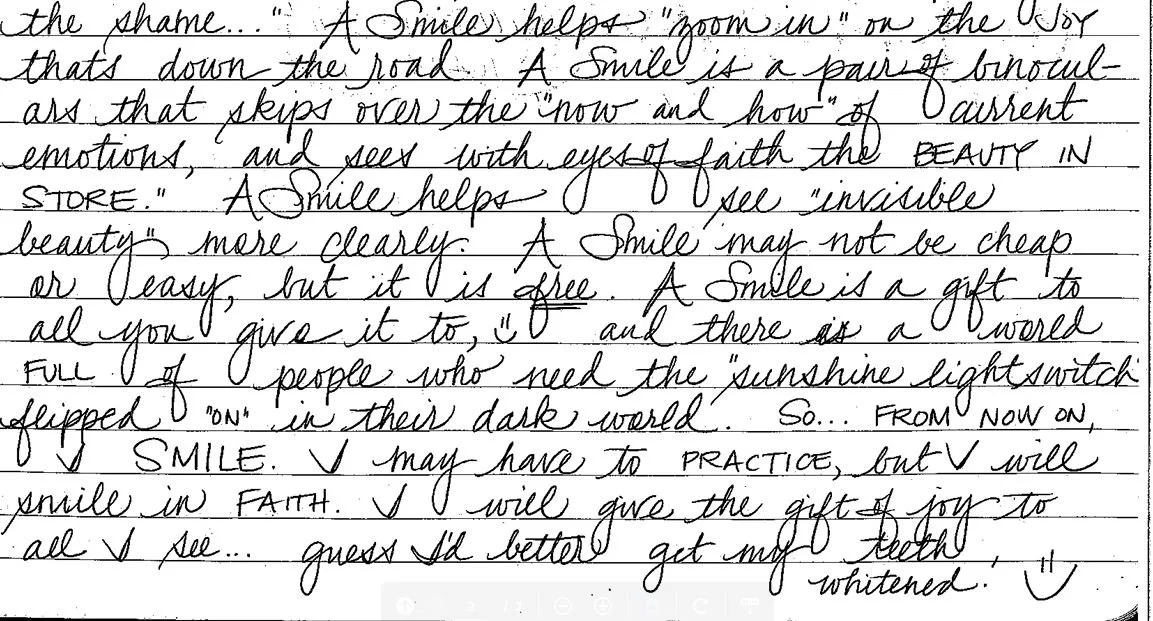 the shame..." A Smile helps "zoom in" on the JOY
thats down the road. A Smile is a pair of binocul-
ars that skips over the "now and how" of current
emotions, and sees with eyes of faith the BEAUTY IN
STORE." A Smile helps see "invisible
beauty" more clearly. A Smile may not be cheap
or easy, but it is free. A Smile is a gift to
all you give it to, and there is a world
FULL of people who need the "sunshine lightswitch"
flipped "ON" in their dark world. So... FROM NOW ON,
I SMILE. I may have to PRACTICE, but I will
smile in FAITH. I will give the gift of joy to
all I see... guess I'd better get my teeth
whitened.
2 / 2